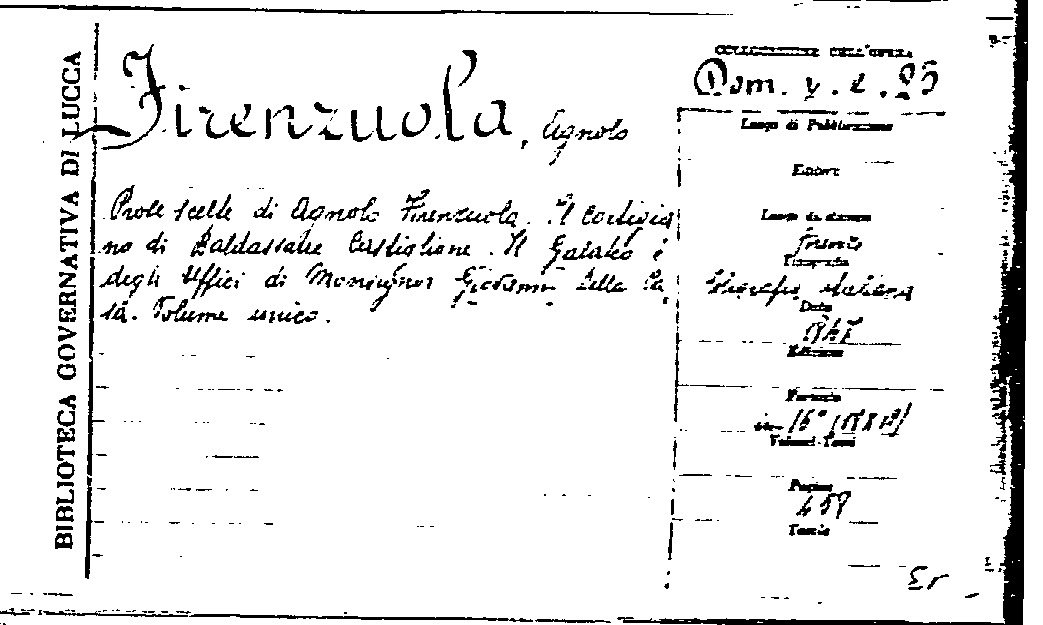 BIBLIOTECA GOVERNATIVA DI LUCCA
Firenzuola, Agnolo
Prose scelte di Agnolo Firenzuola. Il Cortigia
no di Baldassarre Castiglione. Il Galateo e
degli Uffici di Monsignor Giovanni Della Ca,
sa. Volume unico.
COLLOCAZIONE DELL'OPERA
Dom. v. 2. 25
Luogo di Pubblicazione
Editore
Luogo di stampa
Firenze
Tipografia
Tipografia Italiana
Data
Edizione
Formato
in- 16°
Volumi-Tomi
Pagine
Tavole
Er